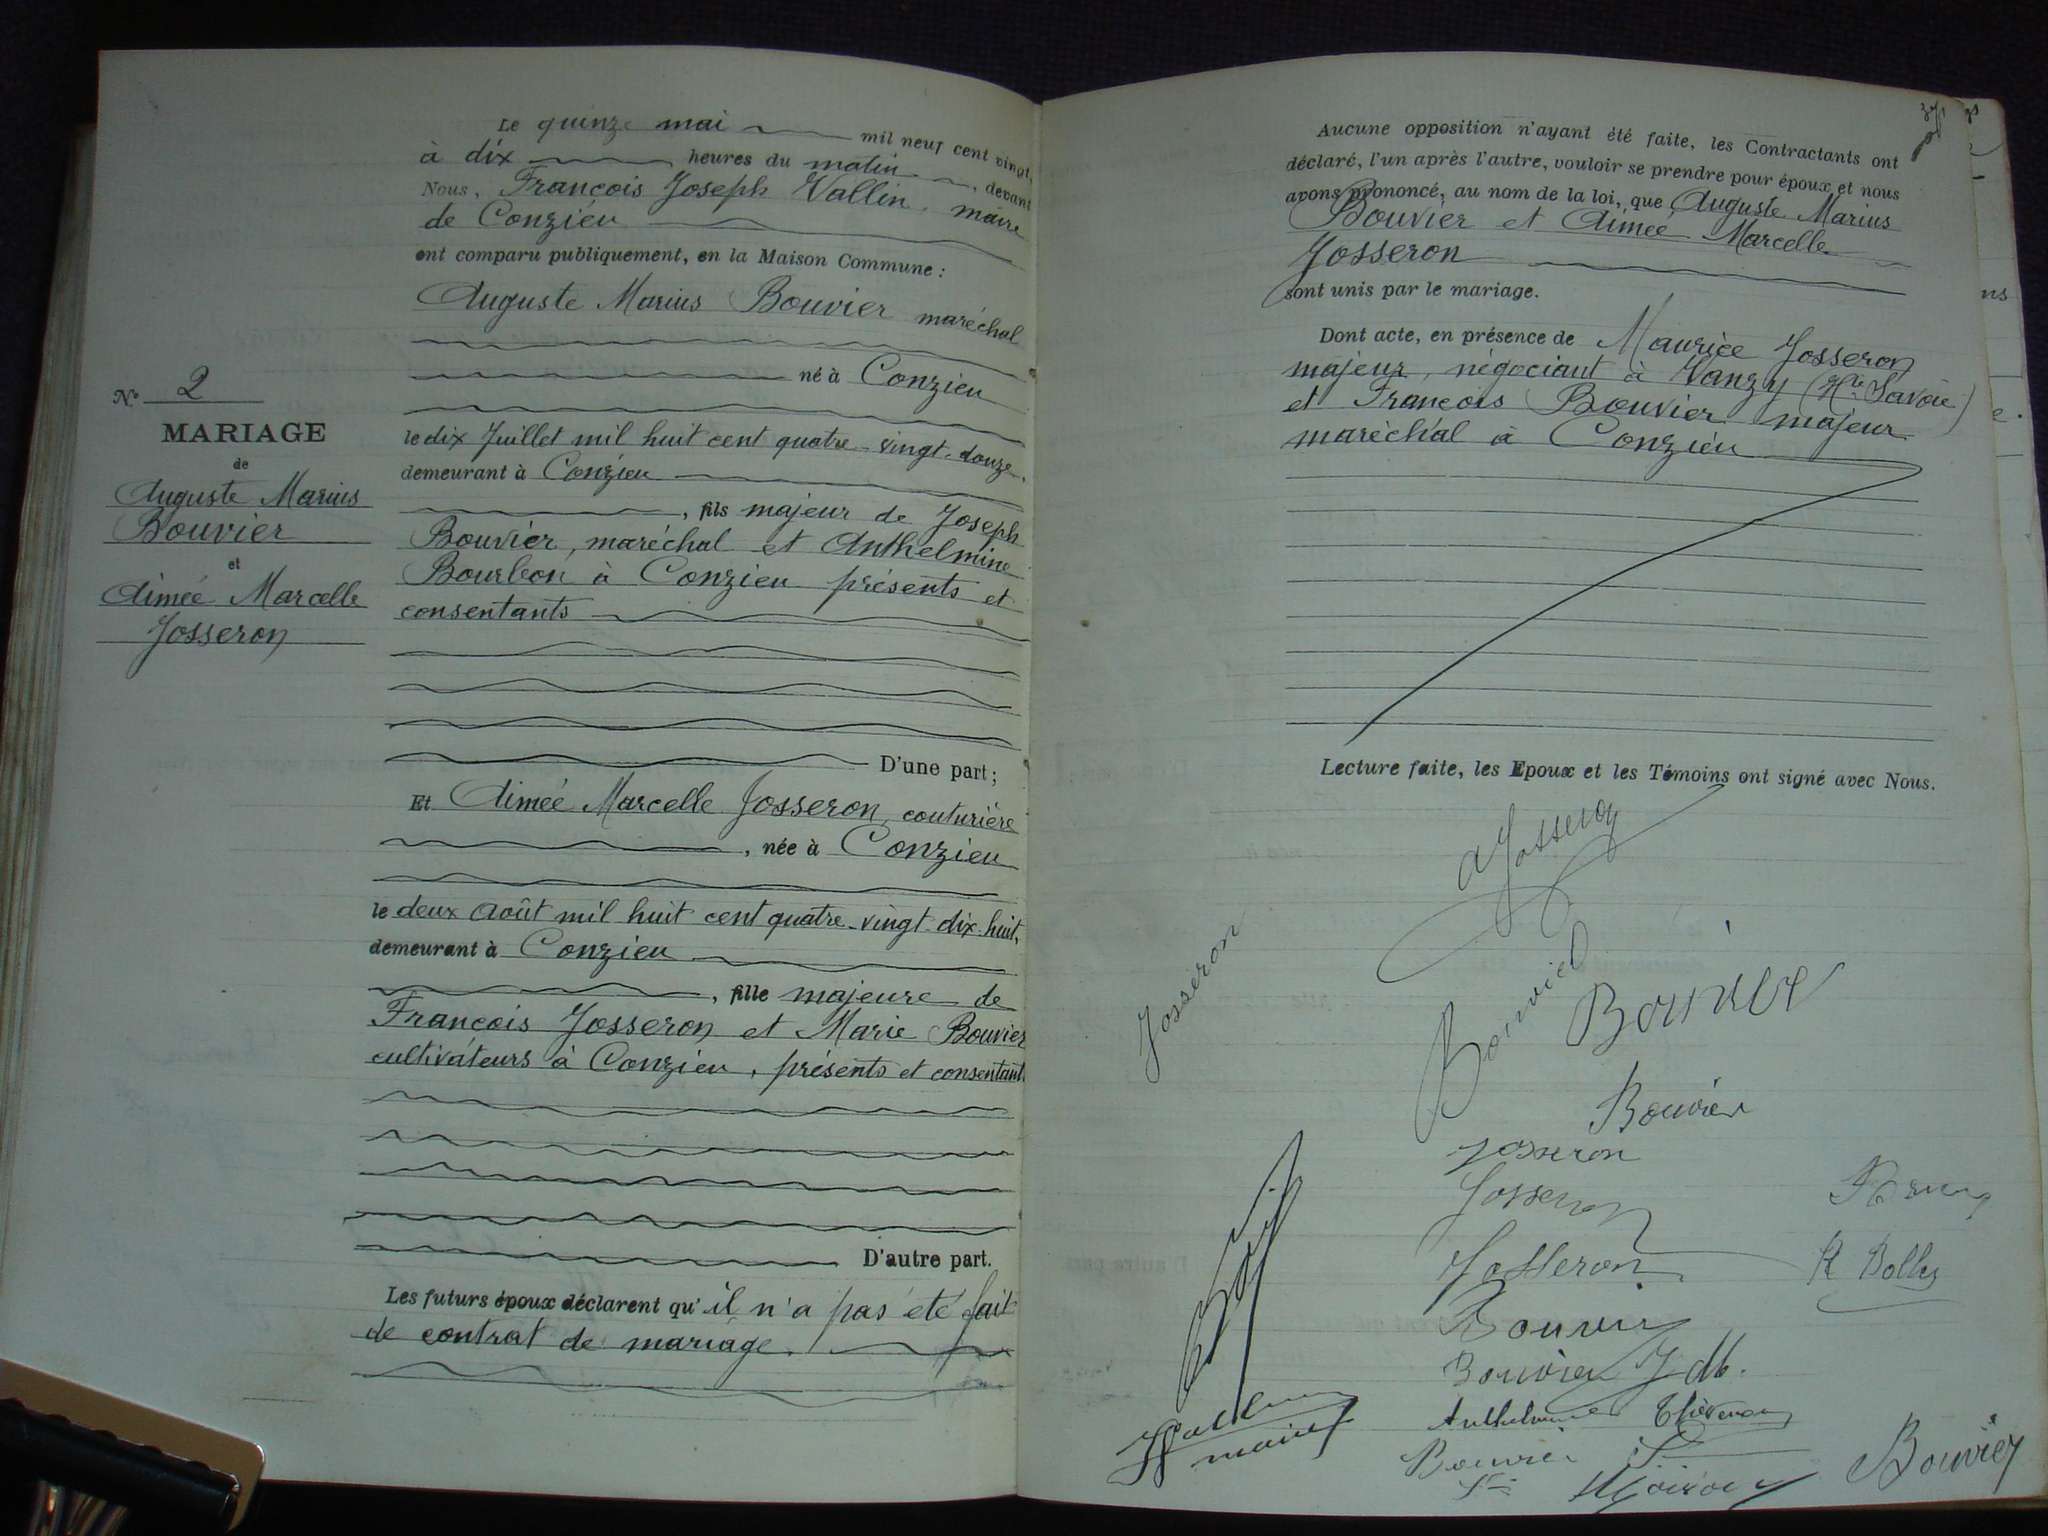 Le quinze mai mil neuf cent vingt,
à dix heures du matin, devant
Nous, François Joseph Vallin, maire
de Conzieu
ont comparu publiquement, en la Maison Commune :
Auguste Marius Bouvier maréchal
né à Conzieu
le dix Juillet mil huit cent quatre-vingt-douze,
demeurant à Conzieu
, fils majeur de Joseph
Bouvier, maréchal et Anthelmine
Bourbon à Conzieu présents et
consentants
D'une part ;
Et Aimée Marcelle Josseron, couturière
, née à Conzieu
le deux Août mil huit cent quatre-vingt-dix-huit,
demeurant à Conzieu
, fille majeure de
François Josseron et Marie Bouvier
cultivateurs à Conzieu, présents et consentants
D'autre part.
Les futurs époux déclarent qu'il n'a pas été fait
de contrat de mariage.
N° 2
MARIAGE
de
Auguste Marius
Bouvier
et
Aimée Marcelle
Josseron
Aucune opposition n'ayant été faite, les Contractants ont
déclaré, l'un après l'autre, vouloir se prendre pour époux et nous
avons prononcé, au nom de la loi, que Auguste Marius
Bouvier et Aimée Marcelle
Josseron
sont unis par le mariage.
Dont acte, en présence de Maurice Josseron
majeur, négociant à Vanzy (Hte Savoie)
et François Bouvier majeur
maréchal à Conzieu
Lecture faite, les Epoux et les Témoins ont signé avec Nous.
A Josseron
Josseron
Bouvier
Bouvier
Bouvier
Josseron
Josseron
Josseron
R Bolley
Bouvier
Bouvier
Vallin
maire
Bouvier
Bouvier